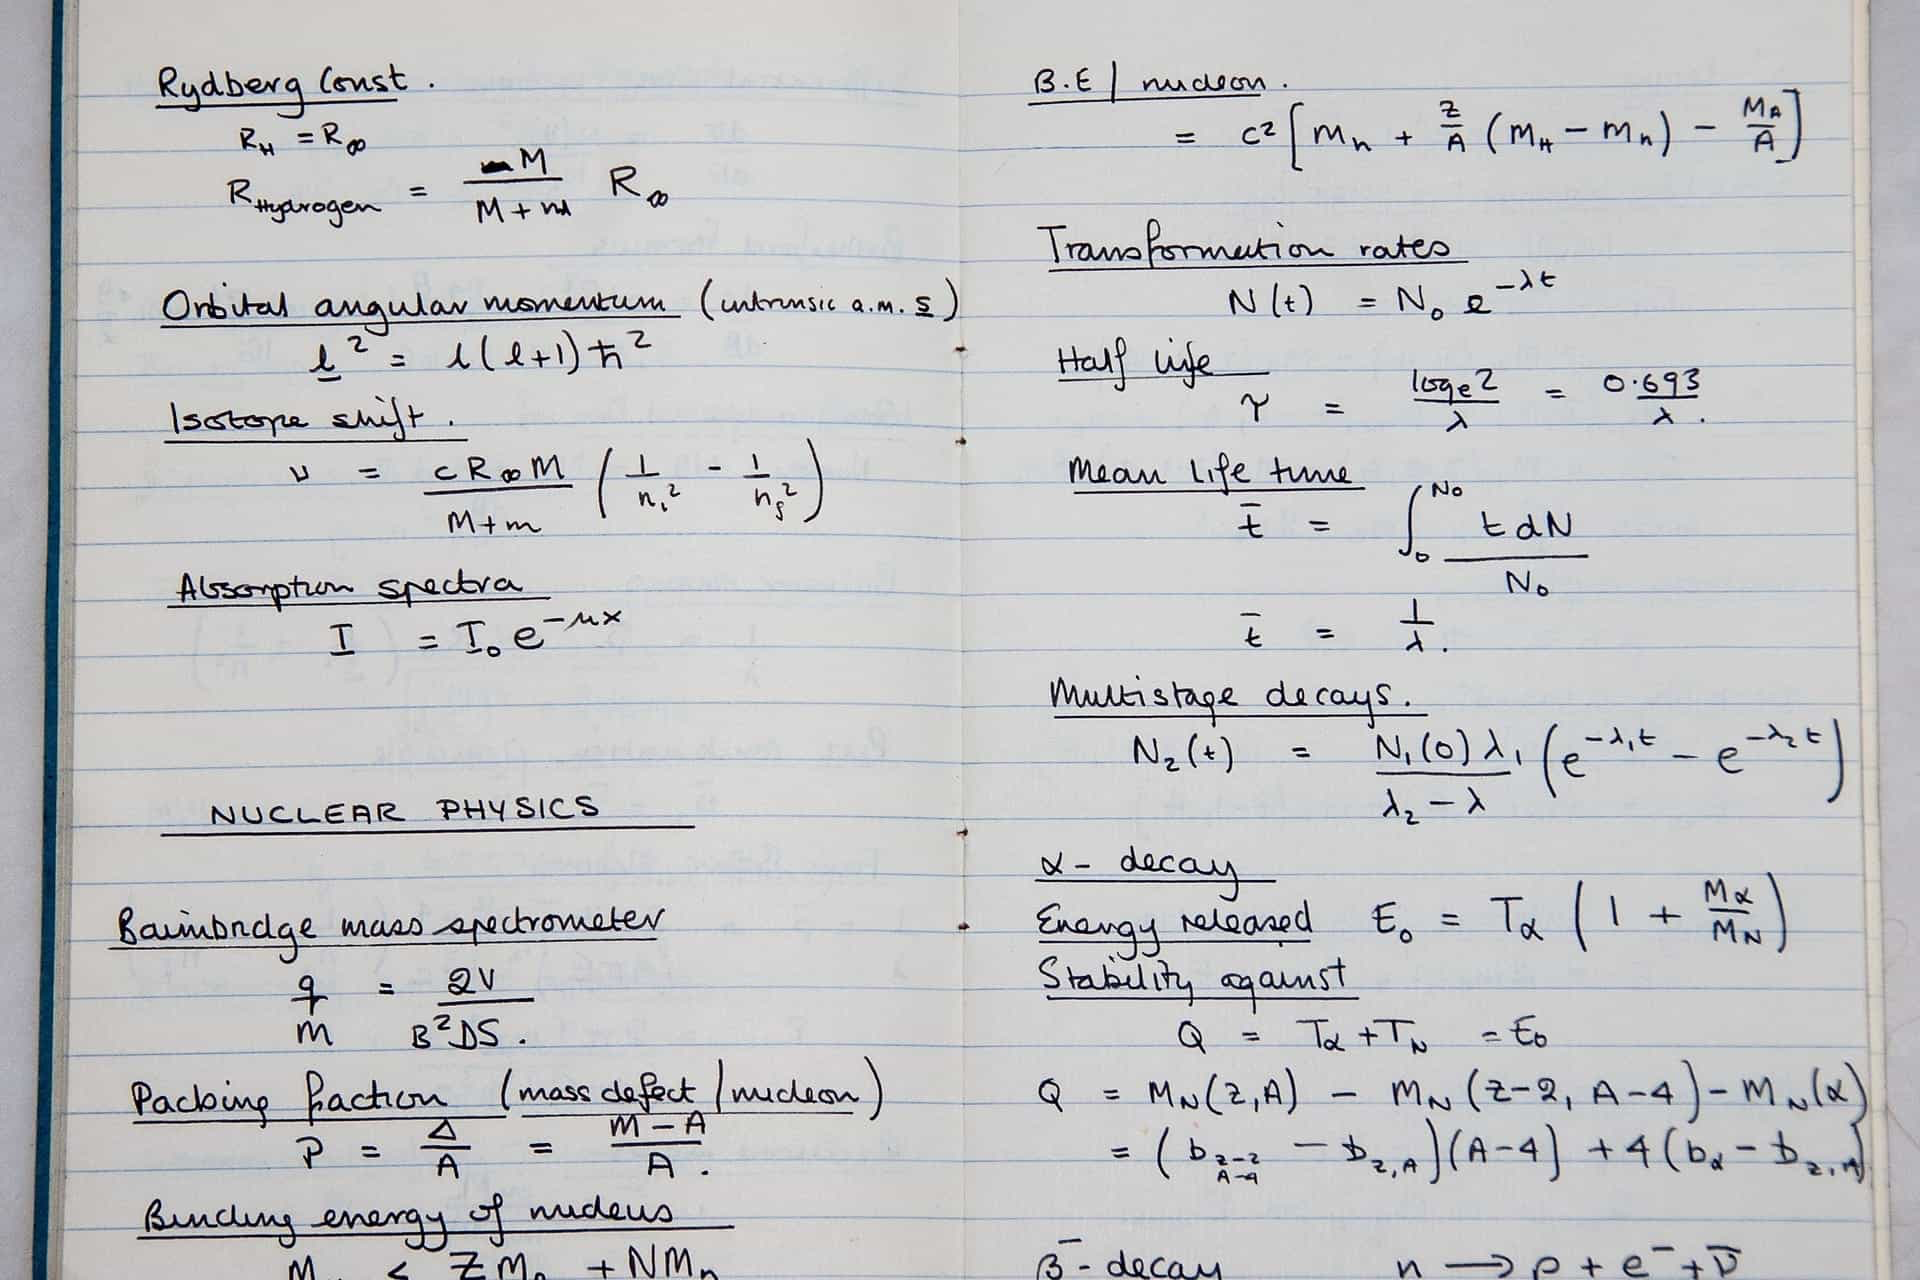 Rydberg Const.
R_H = R_∞
R_Hydrogen = M / (M + m) R_∞
Orbital angular momentum (intrinsic a.m. s)
l² = l(l+1)ħ²
Isotope shift.
ν = cR_∞M / (M+m) (1/n_i² - 1/n_f²)
Absorption spectra
I = I₀e^(-μx)
NUCLEAR PHYSICS
Bainbridge mass spectrometer
q/m = 2V / B²DS.
Packing fraction (mass defect / nucleon)
P = Δ/A = (M-A)/A.
Binding energy of nucleus
< ZM + NM_n
B.E / nucleon.
= c² [m_n + Z/A (m_H - m_n) - M_A/A]
Transformation rates
N(t) = N₀ e^(-λt)
Half life
τ = log_e 2 / λ = 0.693 / λ.
Mean life time
t̄ = ∫₀^N₀ t dN / N₀
t̄ = 1/λ.
Multistage decays.
N₂(t) = N₁(0)λ₁ / (λ₂ - λ) (e^(-λ₁t) - e^(-λ₂t))
α - decay
Energy released E₀ = T_α (1 + M_α/M_N)
Stability against
Q = T_α + T_N = E₀
Q = M_N(Z,A) - M_N(Z-2, A-4) - M_N(α)
= (b_Z-2,A-4 - b_Z,A)(A-4) + 4(b_α - b_Z,A)
β⁻ - decay n → p + e⁻ + ν̄